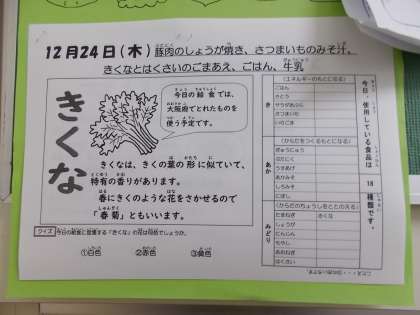 12月24日(木)豚肉のしょうが焼き、さつまいものみそ汁、
きくなとはくさいのごまあえ、ごはん、牛乳
きくな
今日の給食では、
大阪府でとれたものを
使う予定です。
きくなは、きくの葉の形に似ていて、
特有の香りがあります。
春にきくのような花をさかせるので
「春菊」ともいいます。
クイズ 今日の給食に登場する「きくな」の花は何色でしょうか。
①白色 ②赤色 ③黄色
今日、使用している食品は 18 種類です。
き
(エネルギーのもとになる)
ごはん
さとう
サラダあぶら
さつまいも
いりごま
あか
(からだをつくるもとになる)
ぎゅうにゅう
ぶたにく
うすあげ
あかみそ
しろみそ
にぼし
みどり
(からだのちょうしをととのえる)
たまねぎ きくな
しょうが
にんじん
もやし
あおねぎ
はくさい